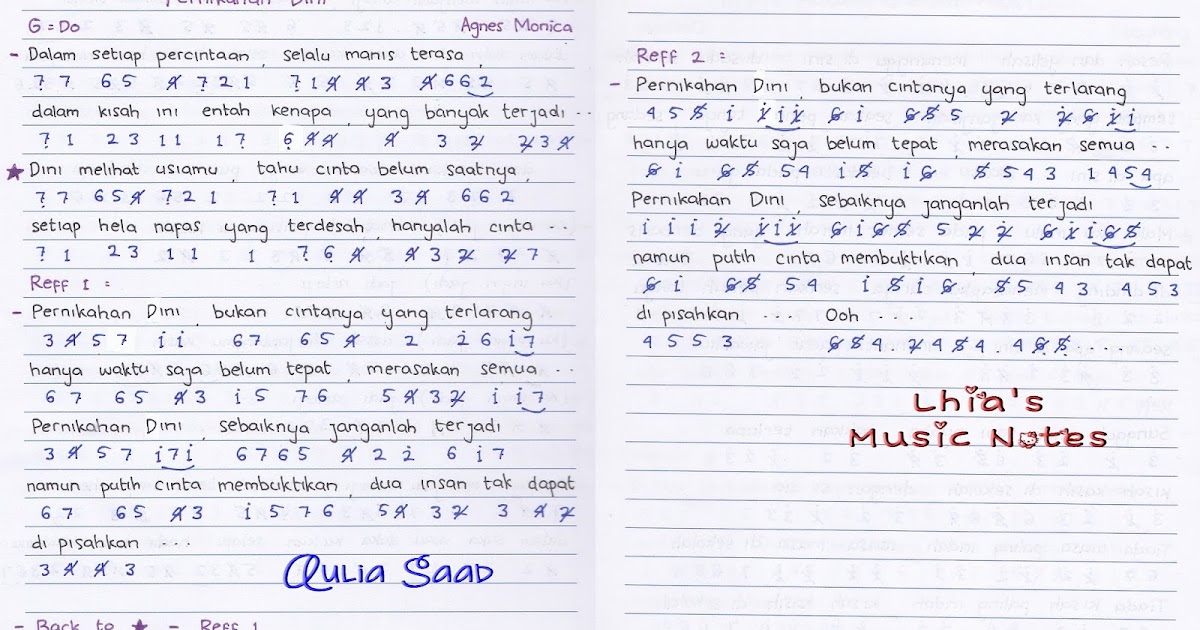 Pernikahan Dini
G = Do Agnes Monica
- Dalam setiap percintaan selalu manis terasa
7̣ 7̣ 6 5 4̸ 7̣ 2 1 7̣ 1 4̸ 4̸ 3 4̸ 6 6 2
dalam kisah ini entah kenapa, yang banyak terjadi ...
7̣ 1 2 3 1 1 1 7̣ 6̣ 4̸ 4̸ 4̸ 3 2̸ 2̸ 3 4̸
★ Dini melihat usiamu, tahu cinta belum saatnya,
7̣ 7̣ 6 5 4̸ 7̣ 2 1 7̣ 1 4̸ 4̸ 3 4̸ 6 6 2
setiap hela napas yang terdesah, hanyalah cinta ...
7̣ 1 2 3 1 1 1 7̣ 6 4̸ 4̸ 3 2̸ 2̸ 7
Reff 1 :
- Pernikahan Dini, bukan cintanya yang terlarang
3 4̸ 5 7 i i 6 7 6 5 4̸ 2 2̇ 6 i 7
hanya waktu saja belum tepat, merasakan semua ..
6 7 6 5 4̸ 3 i 5 7 6 5 4̸ 3 2̸ i i 7
Pernikahan Dini, sebaiknya janganlah terjadi
3 4̸ 5 7 i 7 i 6 7 6 5 4̸ 2 2̇ 6 i 7
namun putih cinta membuktikan, dua insan tak dapat
6 7 6 5 4̸ 3 i 5 7 6 5 4̸ 3 2̸ 3 4̸ 2̸
di pisahkan ...
3 4̸ 4̸ 3
Qulia Saad
- Back to ★ - Reff 1
Reff 2 :
- Pernikahan Dini, bukan cintanya yang terlarang
4 5 5̸ i i̸ i i̸ 6̸ i 6̸ 5̸ 5 2̸ 2̸ 6̸ i̸ i
hanya waktu saja belum tepat, merasakan semua ..
6̸ i 6̸ 5̸ 5 4 i 5̸ i 6̸ 5̸ 5 4 3 1 4 5 4
Pernikahan Dini, sebaiknya janganlah terjadi
i i i 2̸ i̸ i i̸ 6̸ i 6̸ 5̸ 5 2̸ 2̸ 6̸ i̸ i 6̸ 5̸
namun putih cinta membuktikan, dua insan tak dapat
6̸ i 6̸ 5̸ 5 4 i 5̸ i 6̸ 5̸ 5 4 3 4 5 3
di pisahkan .... Ooh ....
4 5 5 3 6̸ 5̸ 4 . 2̸ 4 5̸ 4 . 4 6̸ 5̸ ...
Lhia's
Music Notes